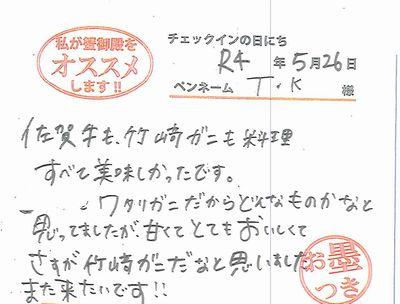 私が蟹御殿を
オススメ
します!!
チェックインの日にち
R4 年 5月 26日
ペンネーム T・K 様
佐賀牛も、竹崎ガニも料理
すべて美味しかったです。
ワタリガニだからどんなものかなと
思ってましたが、甘くてとてもおいしくて
さすが竹崎ガニだなと思いました
また来たいです!!
お墨
つき